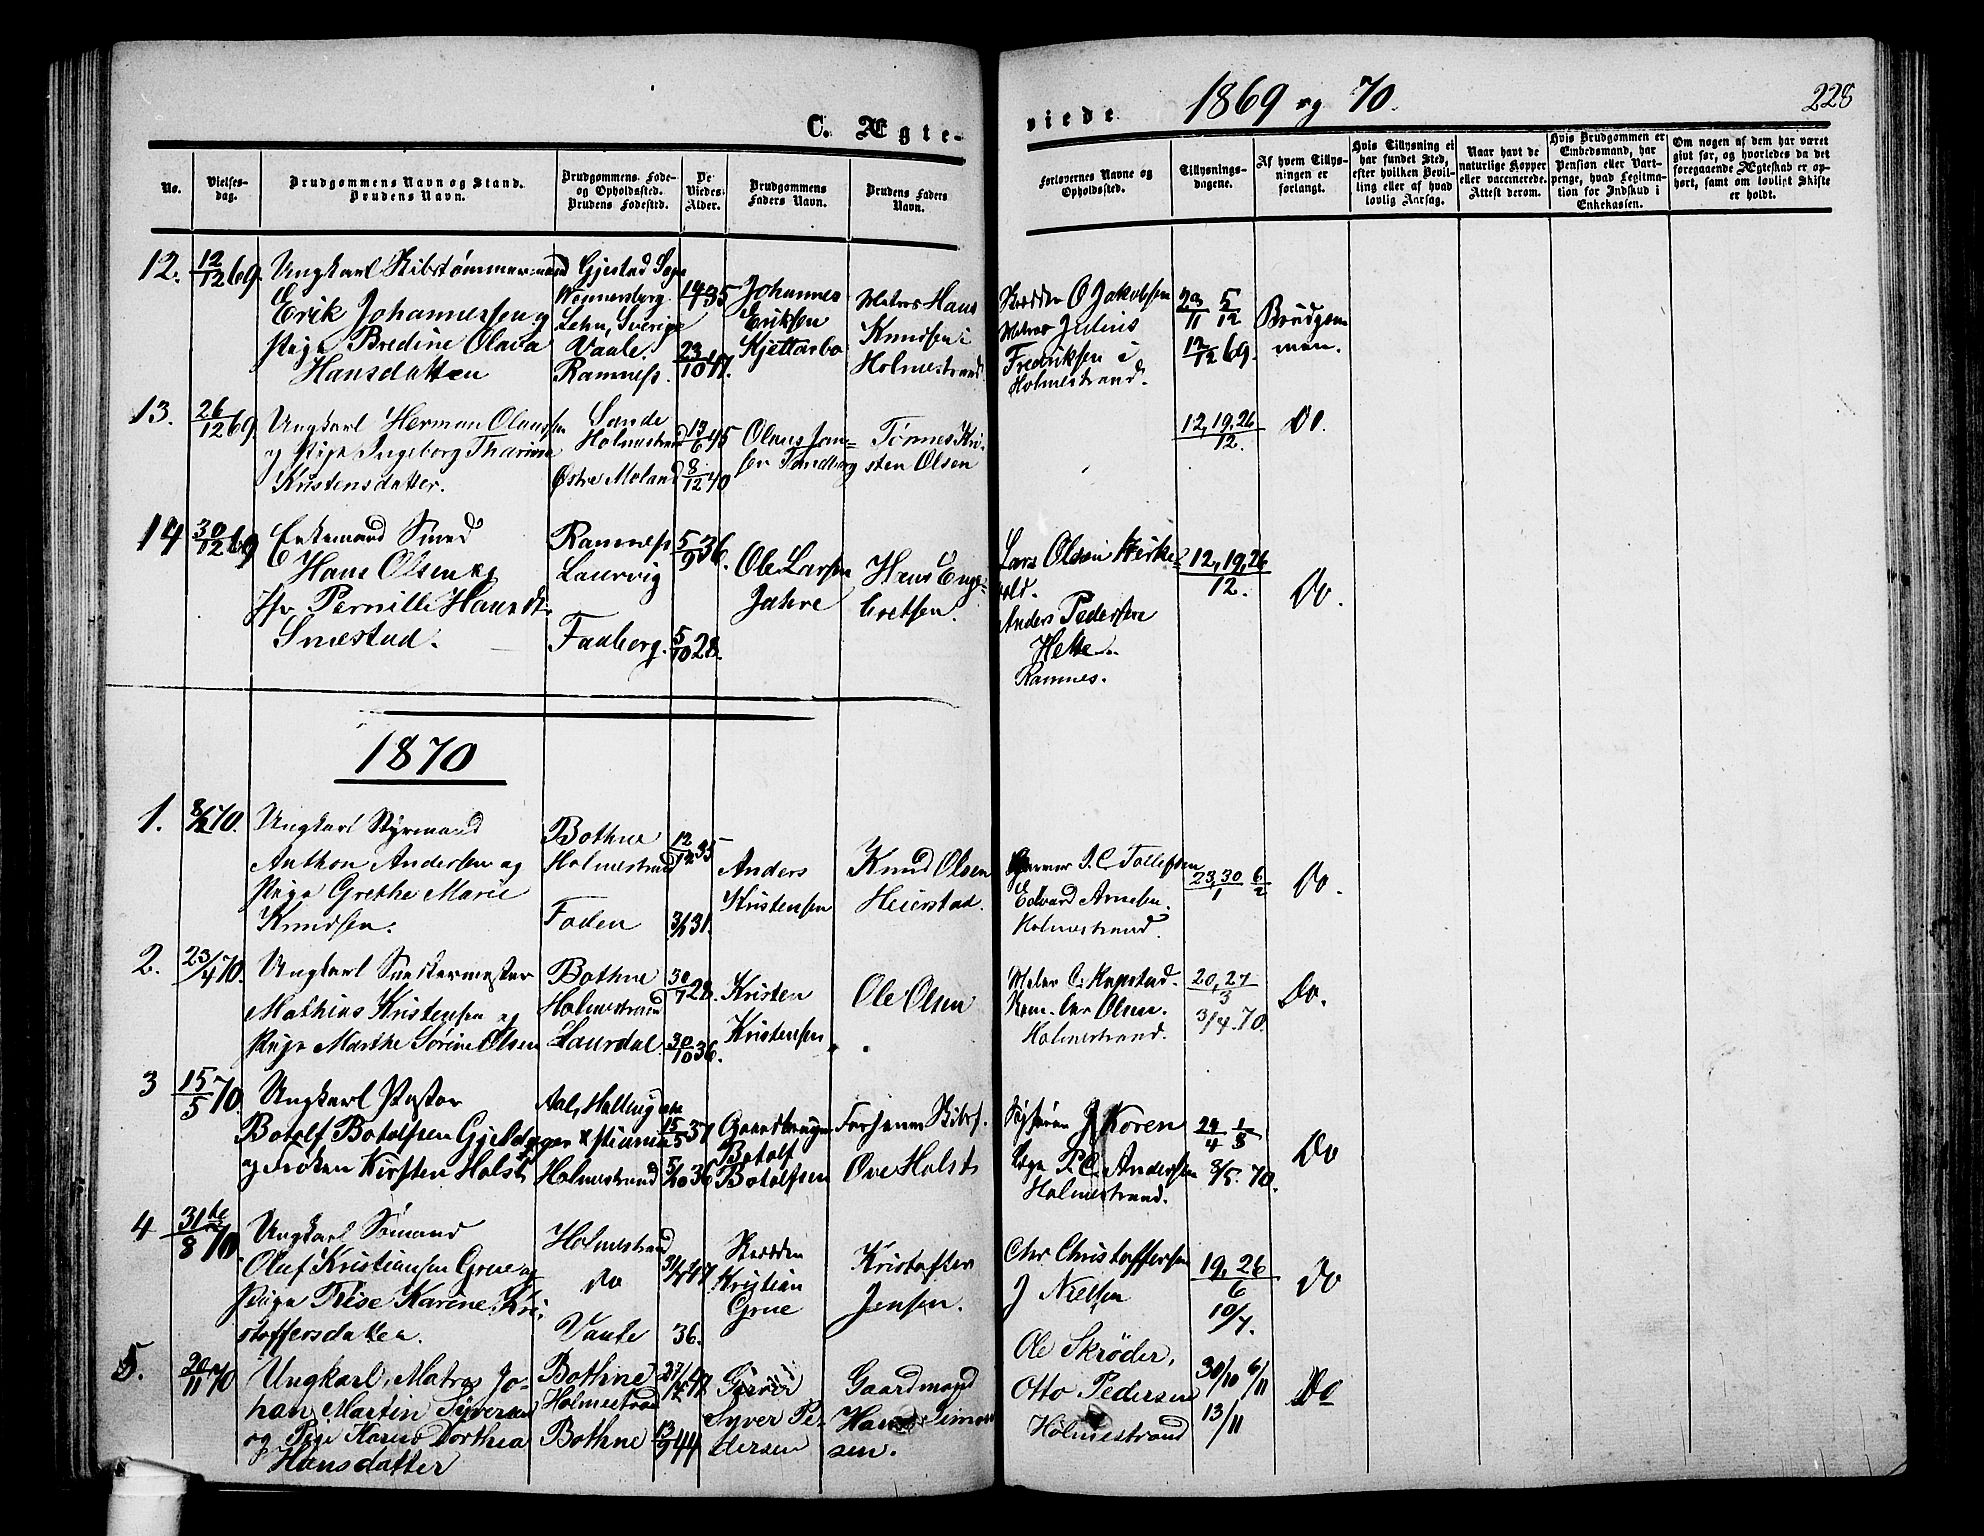 1869 og 70.
228
C. Ægte-
viede
No.
Vielses-
dag.
Brudgommens Navn og Stand.
Brudens Navn.
Brudgommens Føde-
og Opholdssted.
Brudens Fødested.
De
Viedes
Alder.
Brudgommens
Faders Navn.
Brudens Faders
Navn.
Forlovernes Navne og
Opholdssted.
Tillysnings-
dagene.
Af hvem Tillys-
ningen er
forlangt.
Hvis Tillysning ei
har fundet Sted,
efter hvilken Bevil-
ling eller af hvad
lovlig Aarsag.
Naar havt de
naturlige Kopper
eller vaccinerede.
Attest derom.
Hvis Brudgommen er
Embedsmand, har
Pension eller Vart-
penge, hvad Legitima-
tion for Indskud i
Enkekassen.
Om nogen af dem har været
givt før, og hvorledes da det
foregaaende Ægteskab er op-
hørt, samt om lovligt Skifte
er holdt.
12.
12/12 69.
Ungkarl Skibstømmermand
Erik Johannessen og
Pige Bredine Olava
Hansdatter
Gjestad Sogn
Wennersborg
Lehn, Sverige
Vaale.
Ramnes.
35
23/10 47.
Johannes
Eriksen
Kjettarbo
Matros Hans
Knudsen i
Holmestrand.
Skrædder O Jakobsen
Matros Julius
Fredriksen i
Holmestrand.
29/11 5/12
12/12 69.
Brudgom
men.
13.
26/12 69
Ungkarl Herman Olaussen
og Pige Ingeborg Tharine
Kristensdatter.
Sande
Holmestrand
Østre Moland
13/6 45
8/12 40
Olaus Jan-
sen Sandberg
Tønnes Kri-
sten Olsen
12, 19, 26
12.
Do.
14
30/12 69
Enkemand Smed
Hans Olsen og
Pernille Hansdr
Smestad.
Ramnes
Laurvig
Faaberg.
5/9 36.
5/10 28.
Ole Larsen
Jahre
Hans Eng-
bretsen.
Lars Olsen Kirke-
vold.
Anders Pedersen
Helte.
Ramnes.
12, 19, 26
12.
Do.
1870
1.
8/2 70.
Ungkarl Styrmand
Anthon Andersen og
Pige Grethe Marie
Knudsen.
Bothne
Holmestrand
Foden
12/12 35
31.
Anders
Kristensen
Knud Olsen
Heierstad.
Garver P. C. Tollefsen
Edvard Arnesen.
Holmestrand.
23, 30/1 6/2
Do.
2.
23/4 70.
Ungkarl
Mathias Kristensen og
Pige Marthe Sørine Olsen
Bothne
Holmestrand
Laurdal.
30/7 28.
30/10 36.
Kristen
Kristensen
Ole Olsen
Maler C. Rapstad.
Olsen.
Holmestrand.
20, 27
3
3/4. 70.
Do.
3
15/5 70.
Ungkarl Pastor
Botolf Botolfsen Gjeldager
og Frøken Kirsten Holst
Aal, Hallingdal
Xstiania
Holmestrand
15/5 37
5/10 36
Gaardbruger
Botolf
Botolfsen
Ove Holst
J Koren
P. C. Andersen
Holmestrand.
24/4 1/5
8/5. 70.
Do
4
31te/8 70
Ungkarl Sømand
Oluf Kristiansen Grue og
Pige Trise Karine Kri-
stoffersdatter.
Holmestrand
Do
Vaale
47
36.
Skrædder
Kristian
Grue
Kristoffer
Jensen.
Chr Christoffersen
J Nielsen
19, 26
6
10/7.
Do
5.
20/11 70
Ungkarl, Matros Jo-
han Martin Syversen
og Pige Karen Dorthea
Hansdatter
Bothne
Holmestrand
Bothne
27/4 47
13/9 44
Garver
Syver Pe-
dersen
Gaardmand
Hans Simon-
sen.
Ole Skrøder,
Otto Pedersen
Holmestrand
30/10 6/11
13/11
Do